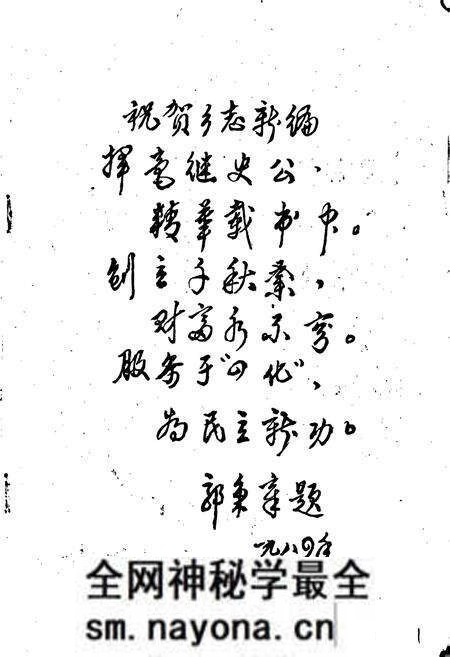 祝贺乡志新编
挥毫继史公、
精华载书中。
创立千秋业,
财富永不穷。
服务于“四化”,
为民立新功。
郭秉章题
一九八四年
全网神秘学最全
sm.nayona.cn